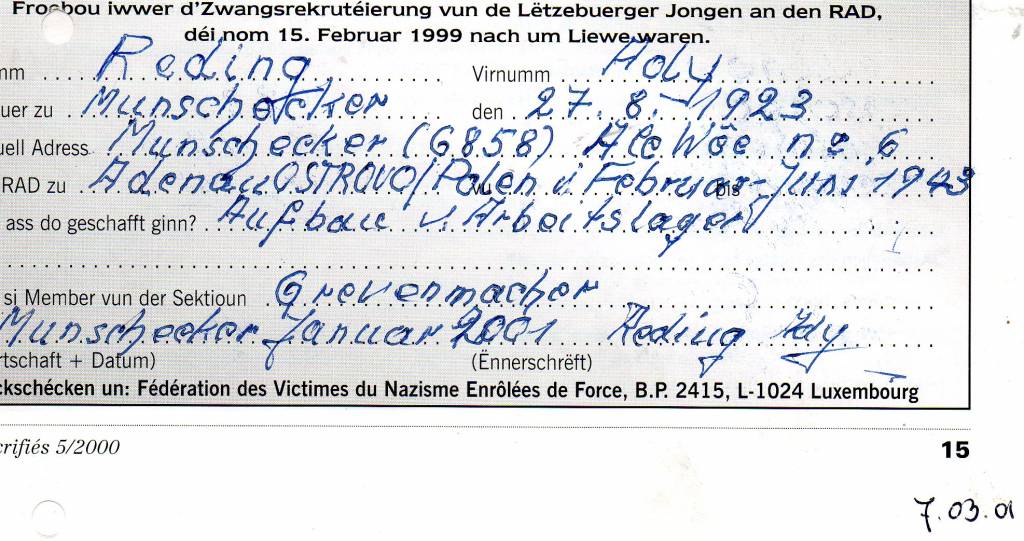 Froebou iwwer d'Zwangsrekrutéierung vun de Lëtzebuerger Jongen an den RAD,
déi nom 15. Februar 1999 nach um Liewe waren.
mm Reding Virnumm Ady
uer zu Munschecker den 27. 8. 1923
uell Adress Munschecker (6858) Ale Wée no 6
RAD zu Adenau OSTROVO/Polen vu Februar bis Juni 1943
ass do geschafft ginn? Aufbau v. Arbeitslager
si Member vun der Sektioun Grevenmacher
Munschecker Januar 2001 Reding Ady
rtschaft + Datum) (Ënnerschrëft)
ckschécken un: Fédération des Victimes du Nazisme Enrôlées de Force, B.P. 2415, L-1024 Luxembourg
crifiés 5/2000 15
7.03.01